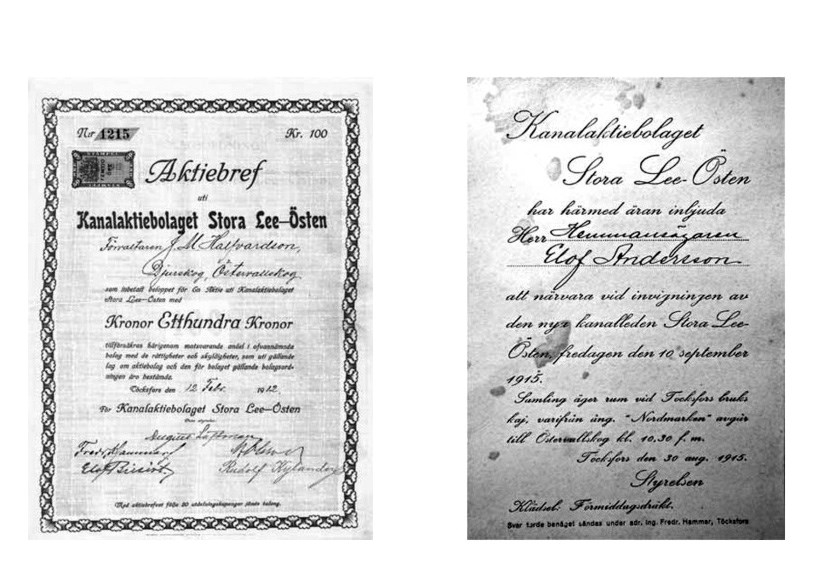 Nir 1215
Kr. 100
Aktiebref
uti
Kanalaktiebolaget Stora Lee–Östen
Förvaltaren J. M. Hallvardson,
Djurskog, Östervallskog
som inbetalt beloppet för En Aktie uti Kanalaktiebolaget
Stora Lee–Östen med
Kronor Etthundra Kronor
tillförsäkras härigenom motsvarande andel i ofvannämnda
bolag med de rättigheter och skyldigheter, som uti gällande
lag om aktiebolag och den för bolaget gällande bolagsord-
ningen äro bestämda.
Töcksfors den 12 Febr. 1912.
För Kanalaktiebolaget Stora Lee–Östen
Dess styrelse:
August Löfman
Fredr Hammar
Rudolf Kylander
Med aktiebrefvet följa 20 utdelningskuponger jämte talong.
Kanalaktiebolaget
Stora Lee-Östen
har härmed äran inbjuda
Herr Hemmansägaren
Elof Andersson
att närvara vid invigningen av
den nya kanalleden Stora Lee-
Östen, fredagen den 10 september
1915.
Samling äger rum vid Töcksfors bruks
kaj, varifrån ång. "Nordmarken" avgår
till Östervallskog kl. 10,30 f. m.
Töcksfors den 30 aug. 1915.
Styrelsen
Klädsel: Förmiddagsdräkt.
Svar torde benäget sändas under adr. Ing. Fredr. Hammar, Töcksfors